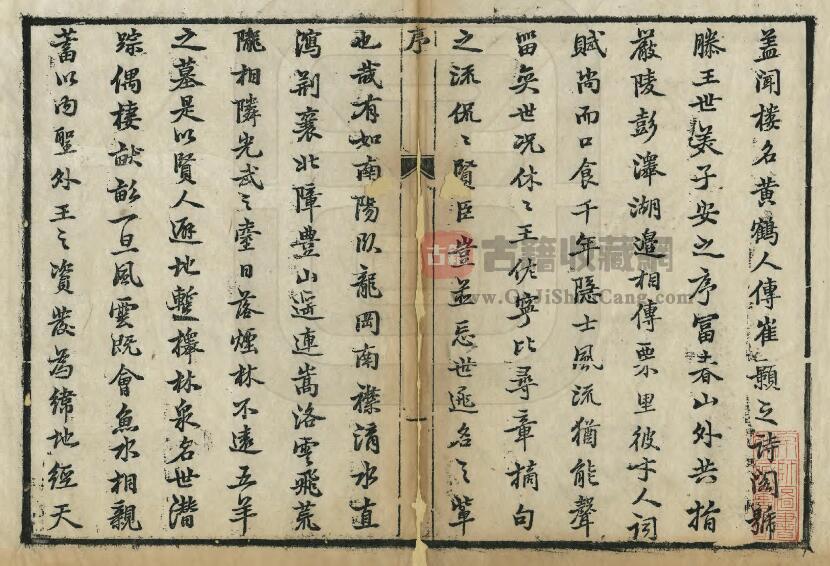 蓋聞樓名黃鶴人傳崔顥之詩閣號
滕王世美子安之序富春山外共指
嚴陵彭澤湖邊相傳栗里彼乎人詞
賦尚而口食千年隱士風流猶能聲
留奕世况休〻王佐寧比尋章摘句
之流侃〻賢臣豈並忘世逃名之輩
序
一
也哉有如南陽臥龍岡南襟淯水直
瀉荆襄北障豊山遥連嵩洛雲飛荒
隴相隣光武之臺日落煙林不遠五羊
之墓是以賢人避地蹔擇林泉名世潛
踪偶棲畎畝一旦風雲既會魚水相親
蓄以内聖外王之資發為緯地經天
古籍
古籍收藏網
www.GuJiShouCang.com